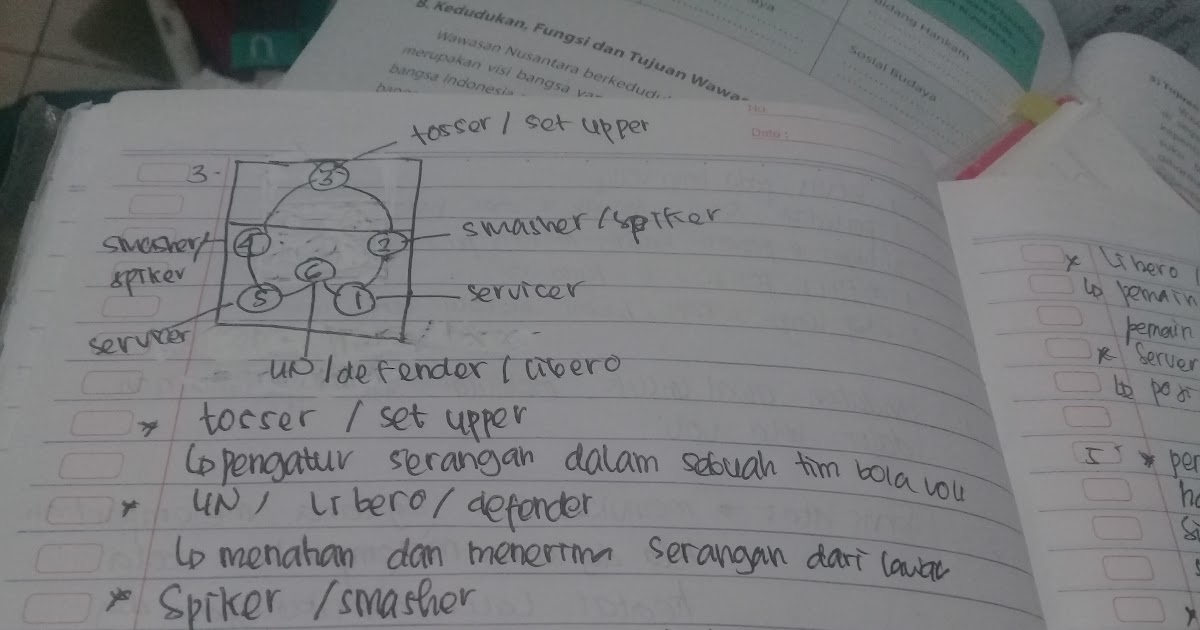 B. Kedudukan, Fungsi dan Tujuan Wawa
Wawasan Nusantara berkedudu
merupakan visi bangsa
bangsa Indonesia
Bidang Hankam
Sosial Budaya
No.
Date :
tosser / set upper
3.
3
smasher/
spiker
4
2
smasher / spiker
6
5
1
servicer
servicer
UN / defender / libero
* tosser / set upper
↳ pengatur serangan dalam sebuah tim bola voli
* UN / Libero / defender
↳ menahan dan menerima serangan dari lawan
* Spiker / smasher
* Libero
↳ pemain
pemain
* Server
↳
5 * per